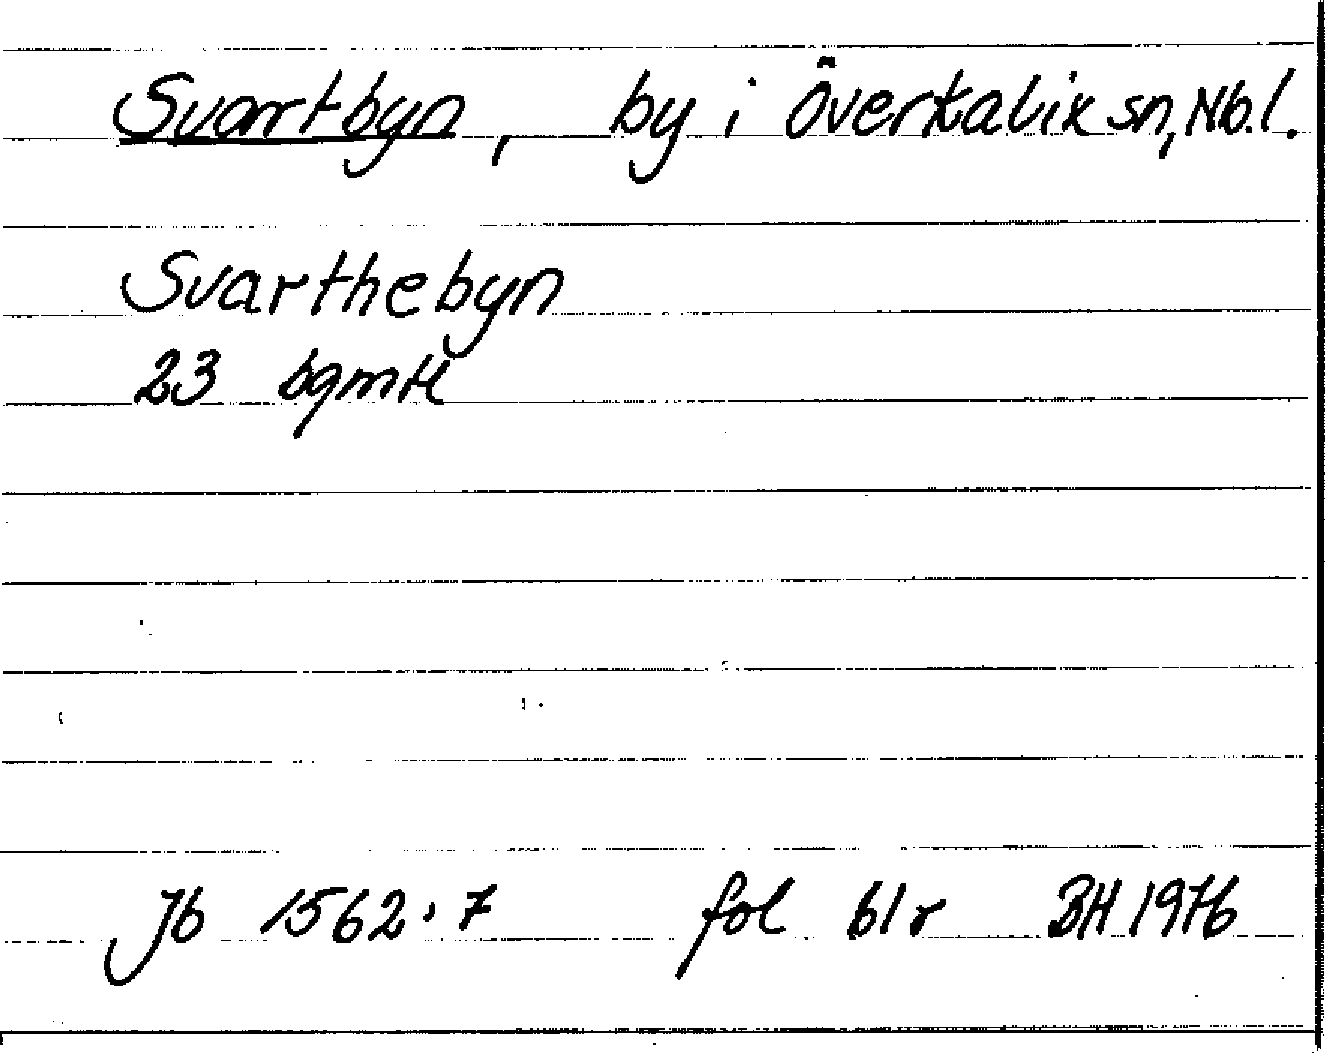 Svartbyn, by i Överkalix sn, Nb.l.
Svarthebyn
23 bgmtl
Jb 1562:7 fol 61r BH 1976